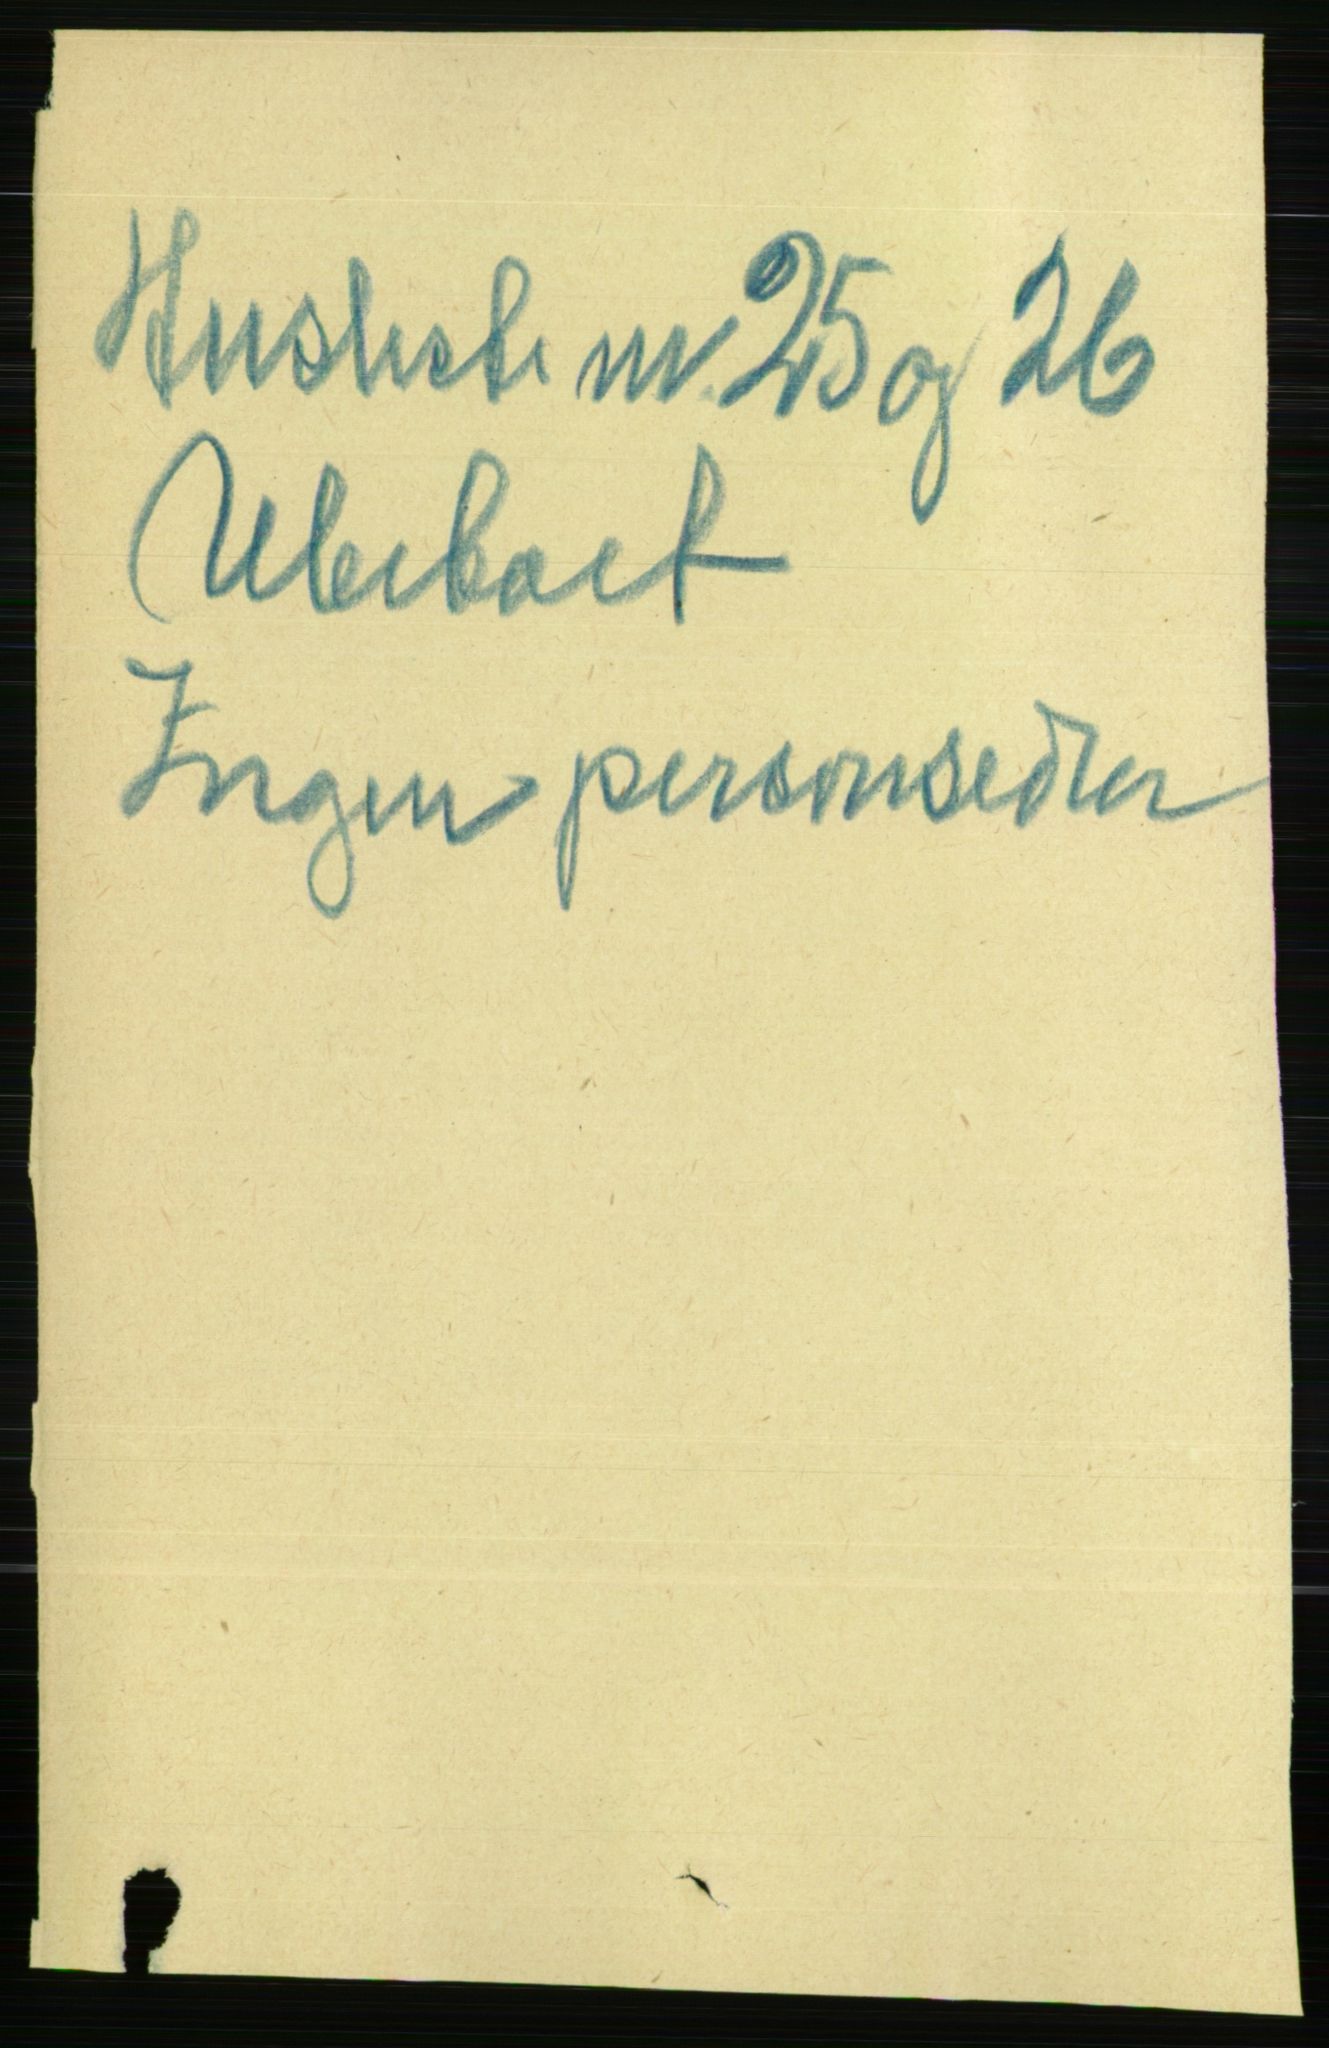 Husliste nr. 25 og 26
Ubeboet
Ingen personsedler